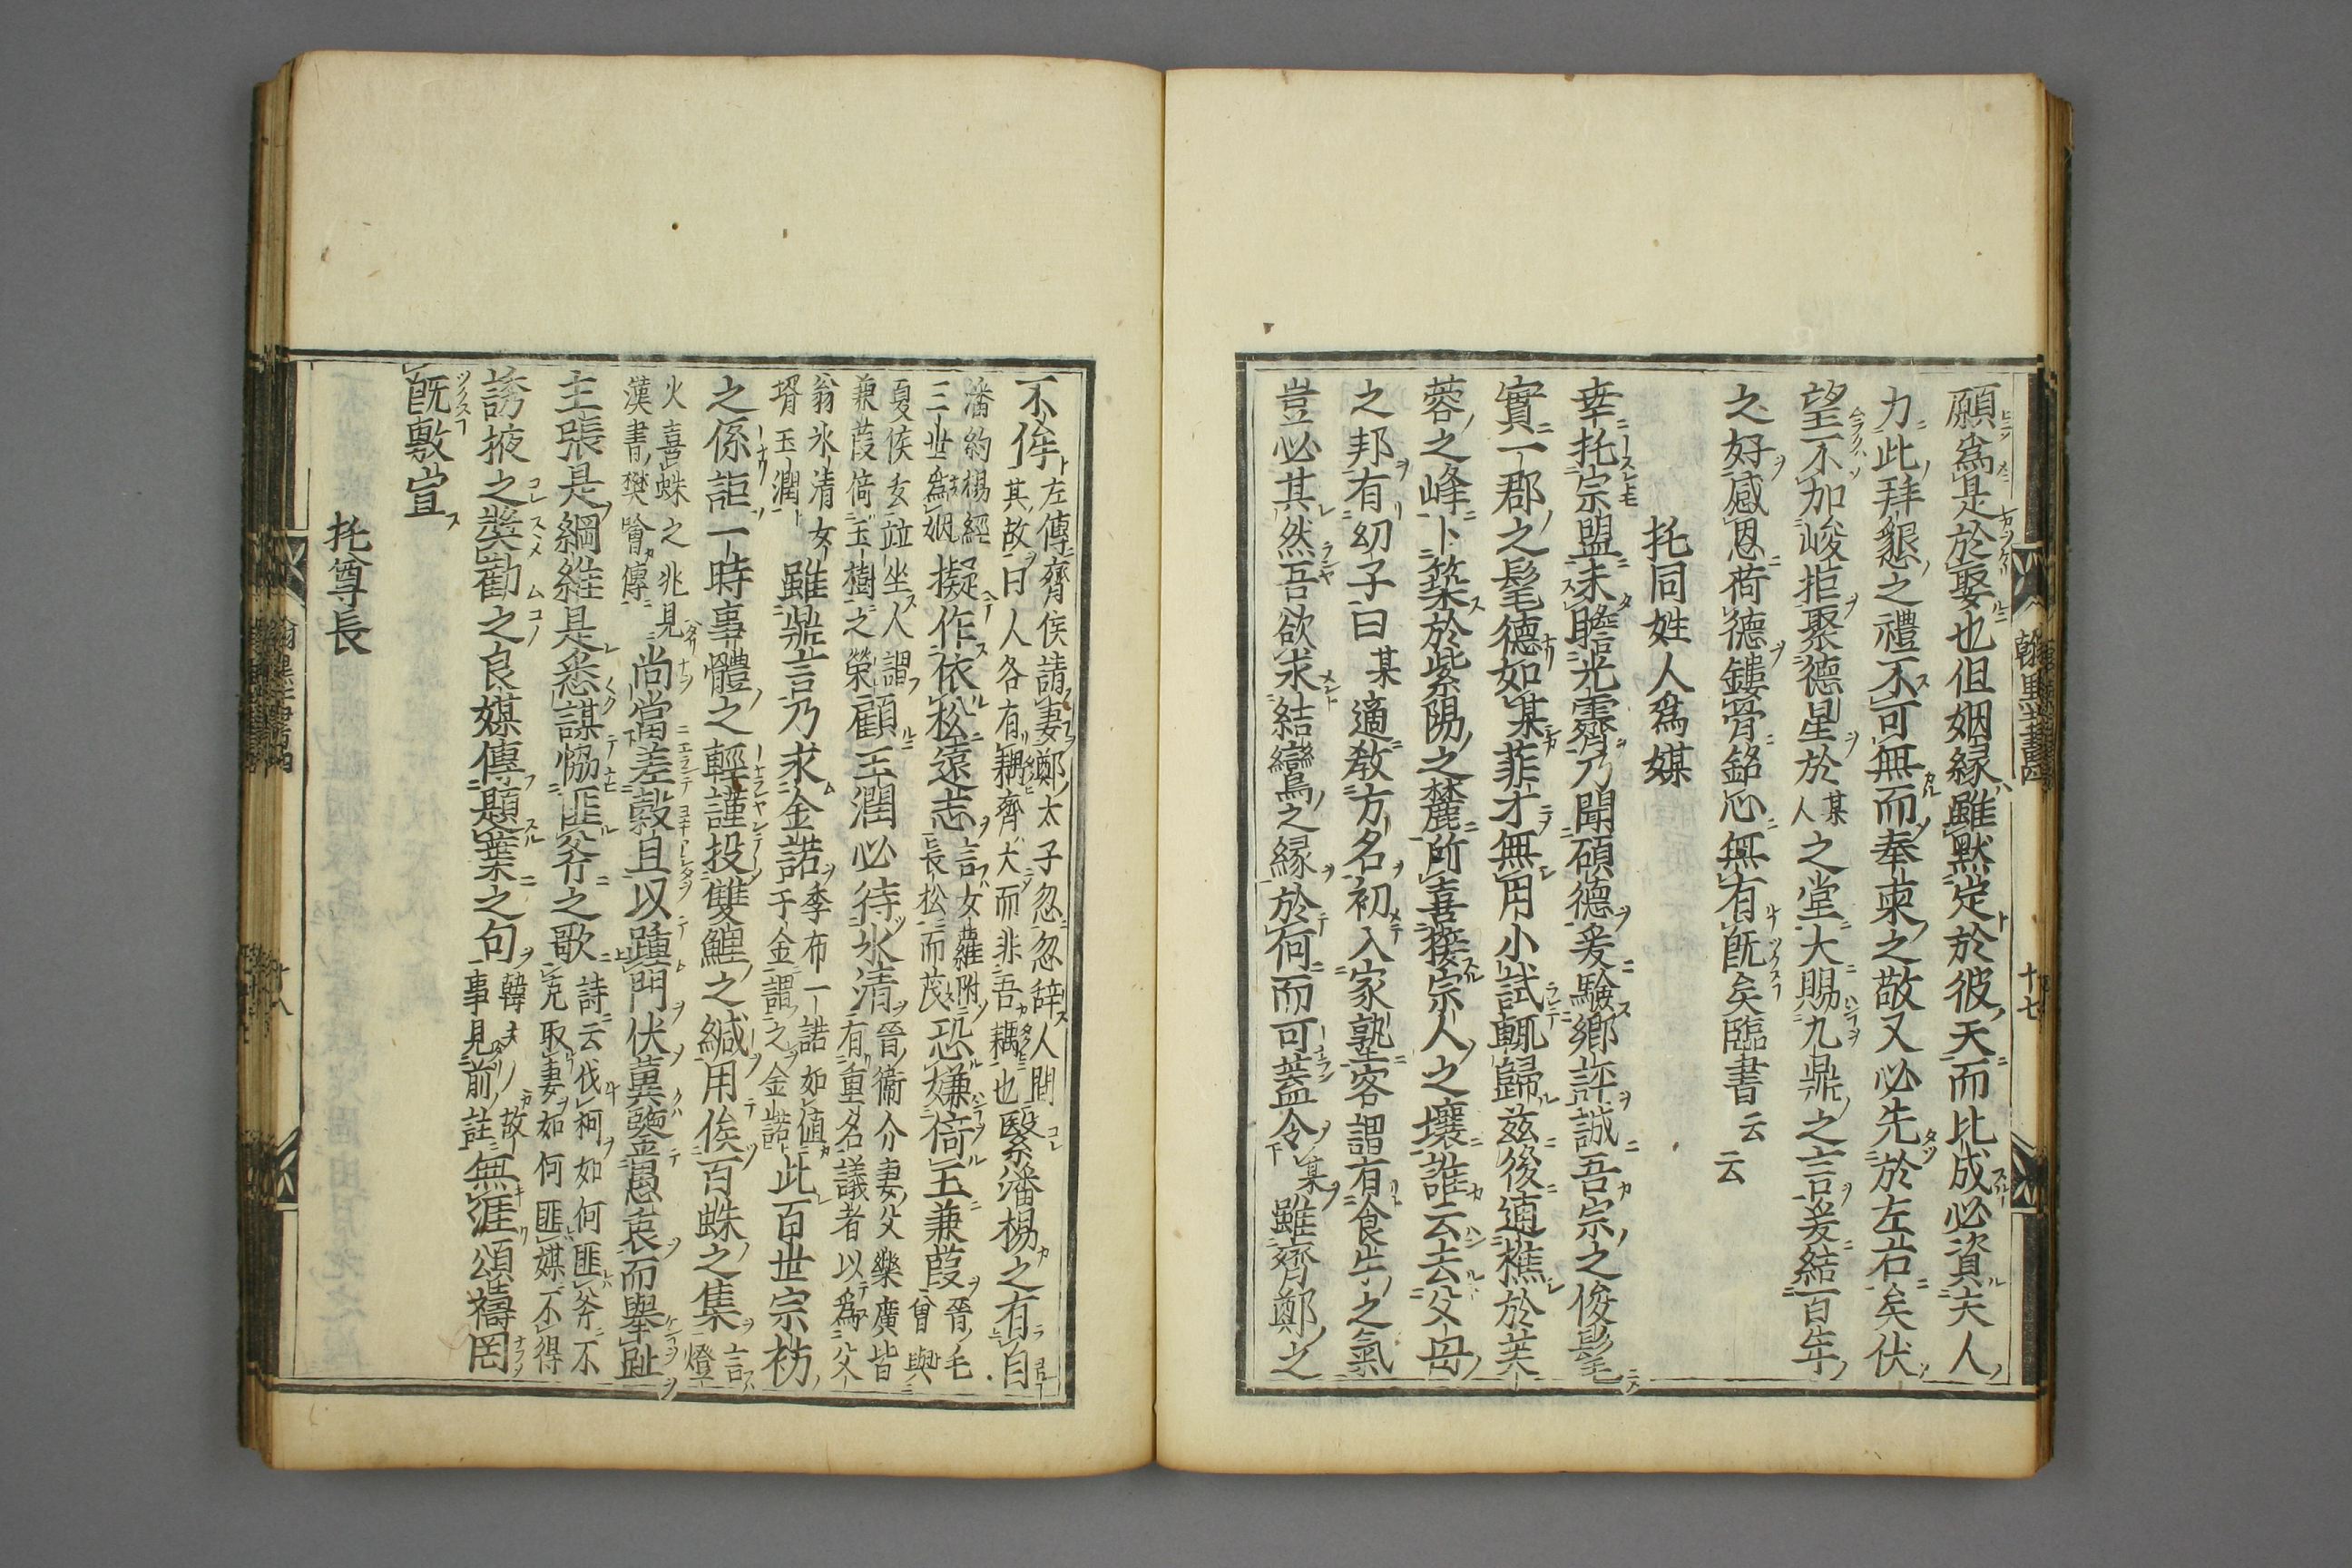 願爲是於娶也但姻縁雖默定於彼天而比成必資夫人
力此拜懇之禮不可無而奉朿之敬又必先於左右矣伏
望不加峻拒聚德星於某人之堂大賜九鼎之言爰結百年
之好感恩荷德鏤骨銘心無有既矣臨書云云
托同姓人爲媒
幸托宗盟未瞻光霽乃聞碩德爰驗鄉評誠吾宗之俊髦
實一郡之髦德如某菲才無用小試輒歸茲後遁樵於芙
蓉之峰卜築於紫陽之麓所喜接宗人之壤誰云去父母
之邦有幼子曰某適敎方名初入家塾客謂有食牛之氣
豈必其然吾欲求結鸞之縁於何而可蓋令某雖齊鄭之
不侔左傳齊侯請妻鄭太子忽忽辞人間
其故曰人各有耦齊大而非吾耦也繄潘楊之有自
潘約楊經
三世爲姻擬作依松遠志言女蘿附
長松而茂恐嫌倚玉兼葭晉毛
曾與
夏侯玄竝坐人謂
兼葭倚玉樹之榮顧玉潤必待氷清晉衞介妻父樂廣皆
有重名議者以爲父
翁氷清女
壻玉潤雖鼎言乃求金諾季布一諾如値
千金謂之金諾此百世宗枋
之係詎一時事體之輕謹投雙鯉之緘用俟百蛛之集言
燈
火喜蛛之兆見
漢書樊噲傳尚當差榖且以踵門伏冀鑒愚衷而舉趾
主張是綱維是悉謀恊匪斧之歌詩云伐柯如何匪斧不
克取妻如何匪媒不得
誘掖之奬勸之良媒傳題葉之句韓夫故
事見前註無涯頌禱罔
既敷宣
托尊長
十七
十八